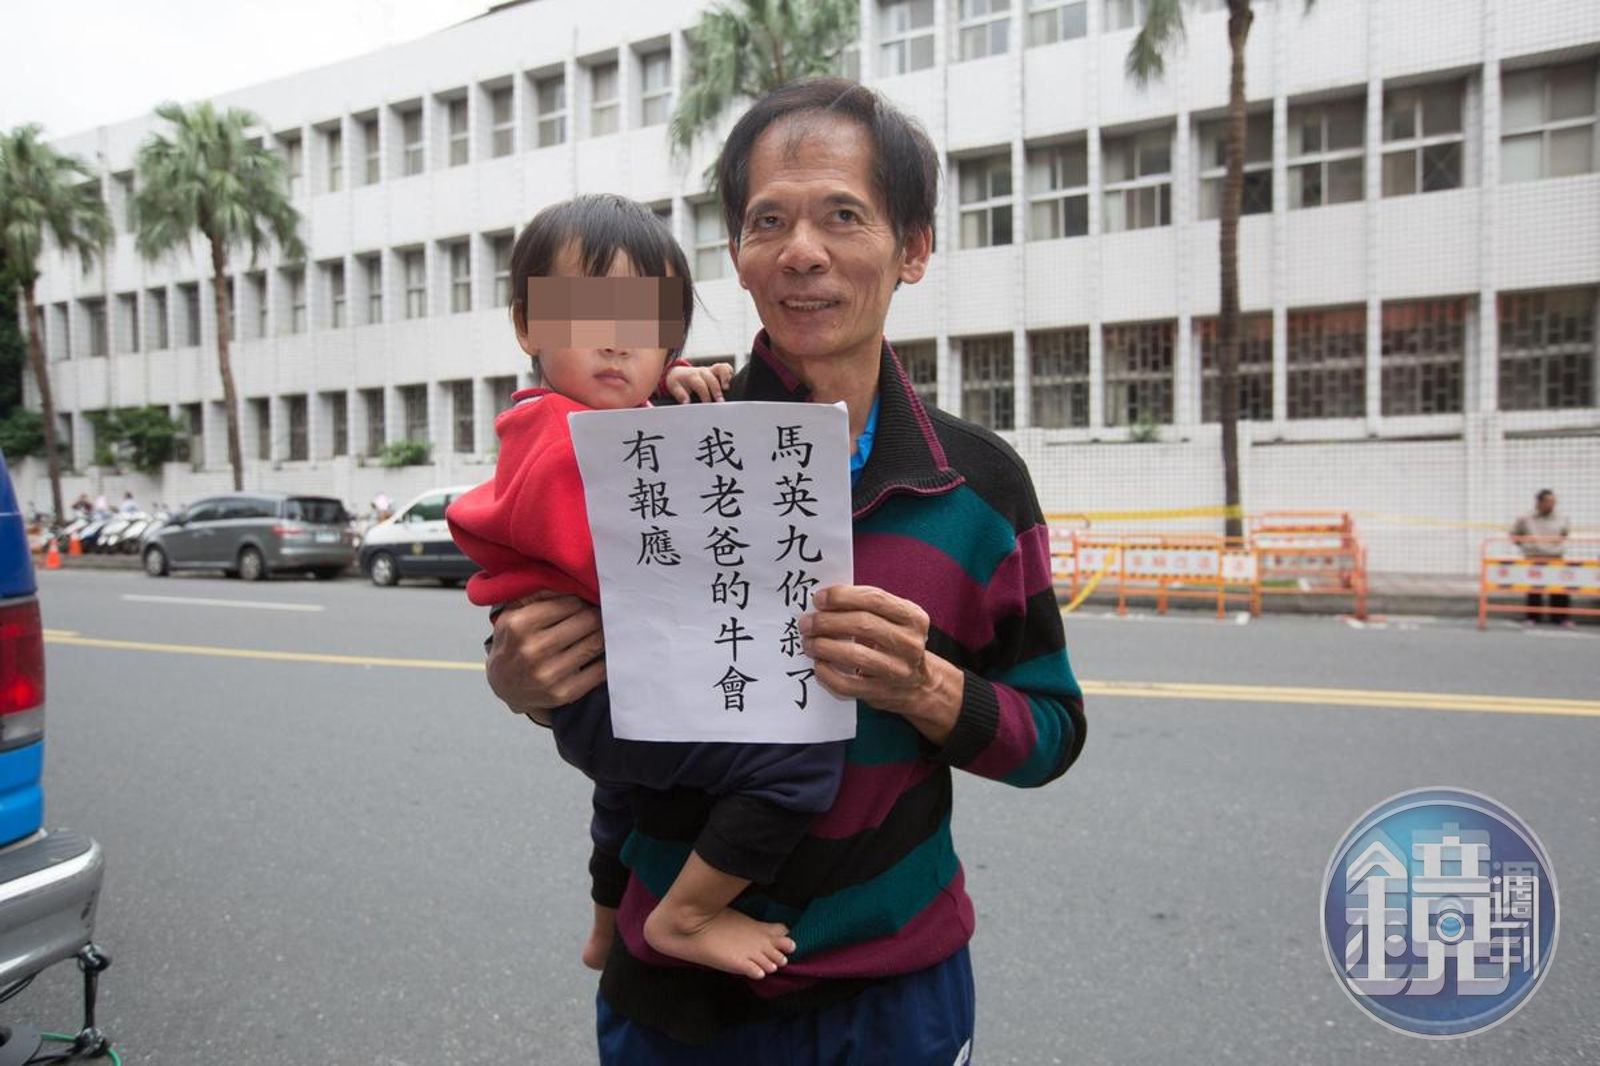 馬英九你殺了
我老爸的牛會
有報應
鏡週刊